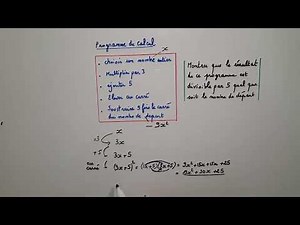 Programme de Calcul
x
- choisir un nombre entier
- Multiplier par 3
- ajouter 5
- Elever au carré
- Soustraire 9 fois le carré
du nombre de départ
Montrer que le résultat
de ce programme est
divisible par 5 quel que
soit le nombre de départ
- 9x²
x
×3
3x
+5
3x + 5
au carré
(3x+5)² = (3x+5)(3x+5) = 9x² + 15x + 15x + 25
9x² + 30x + 25